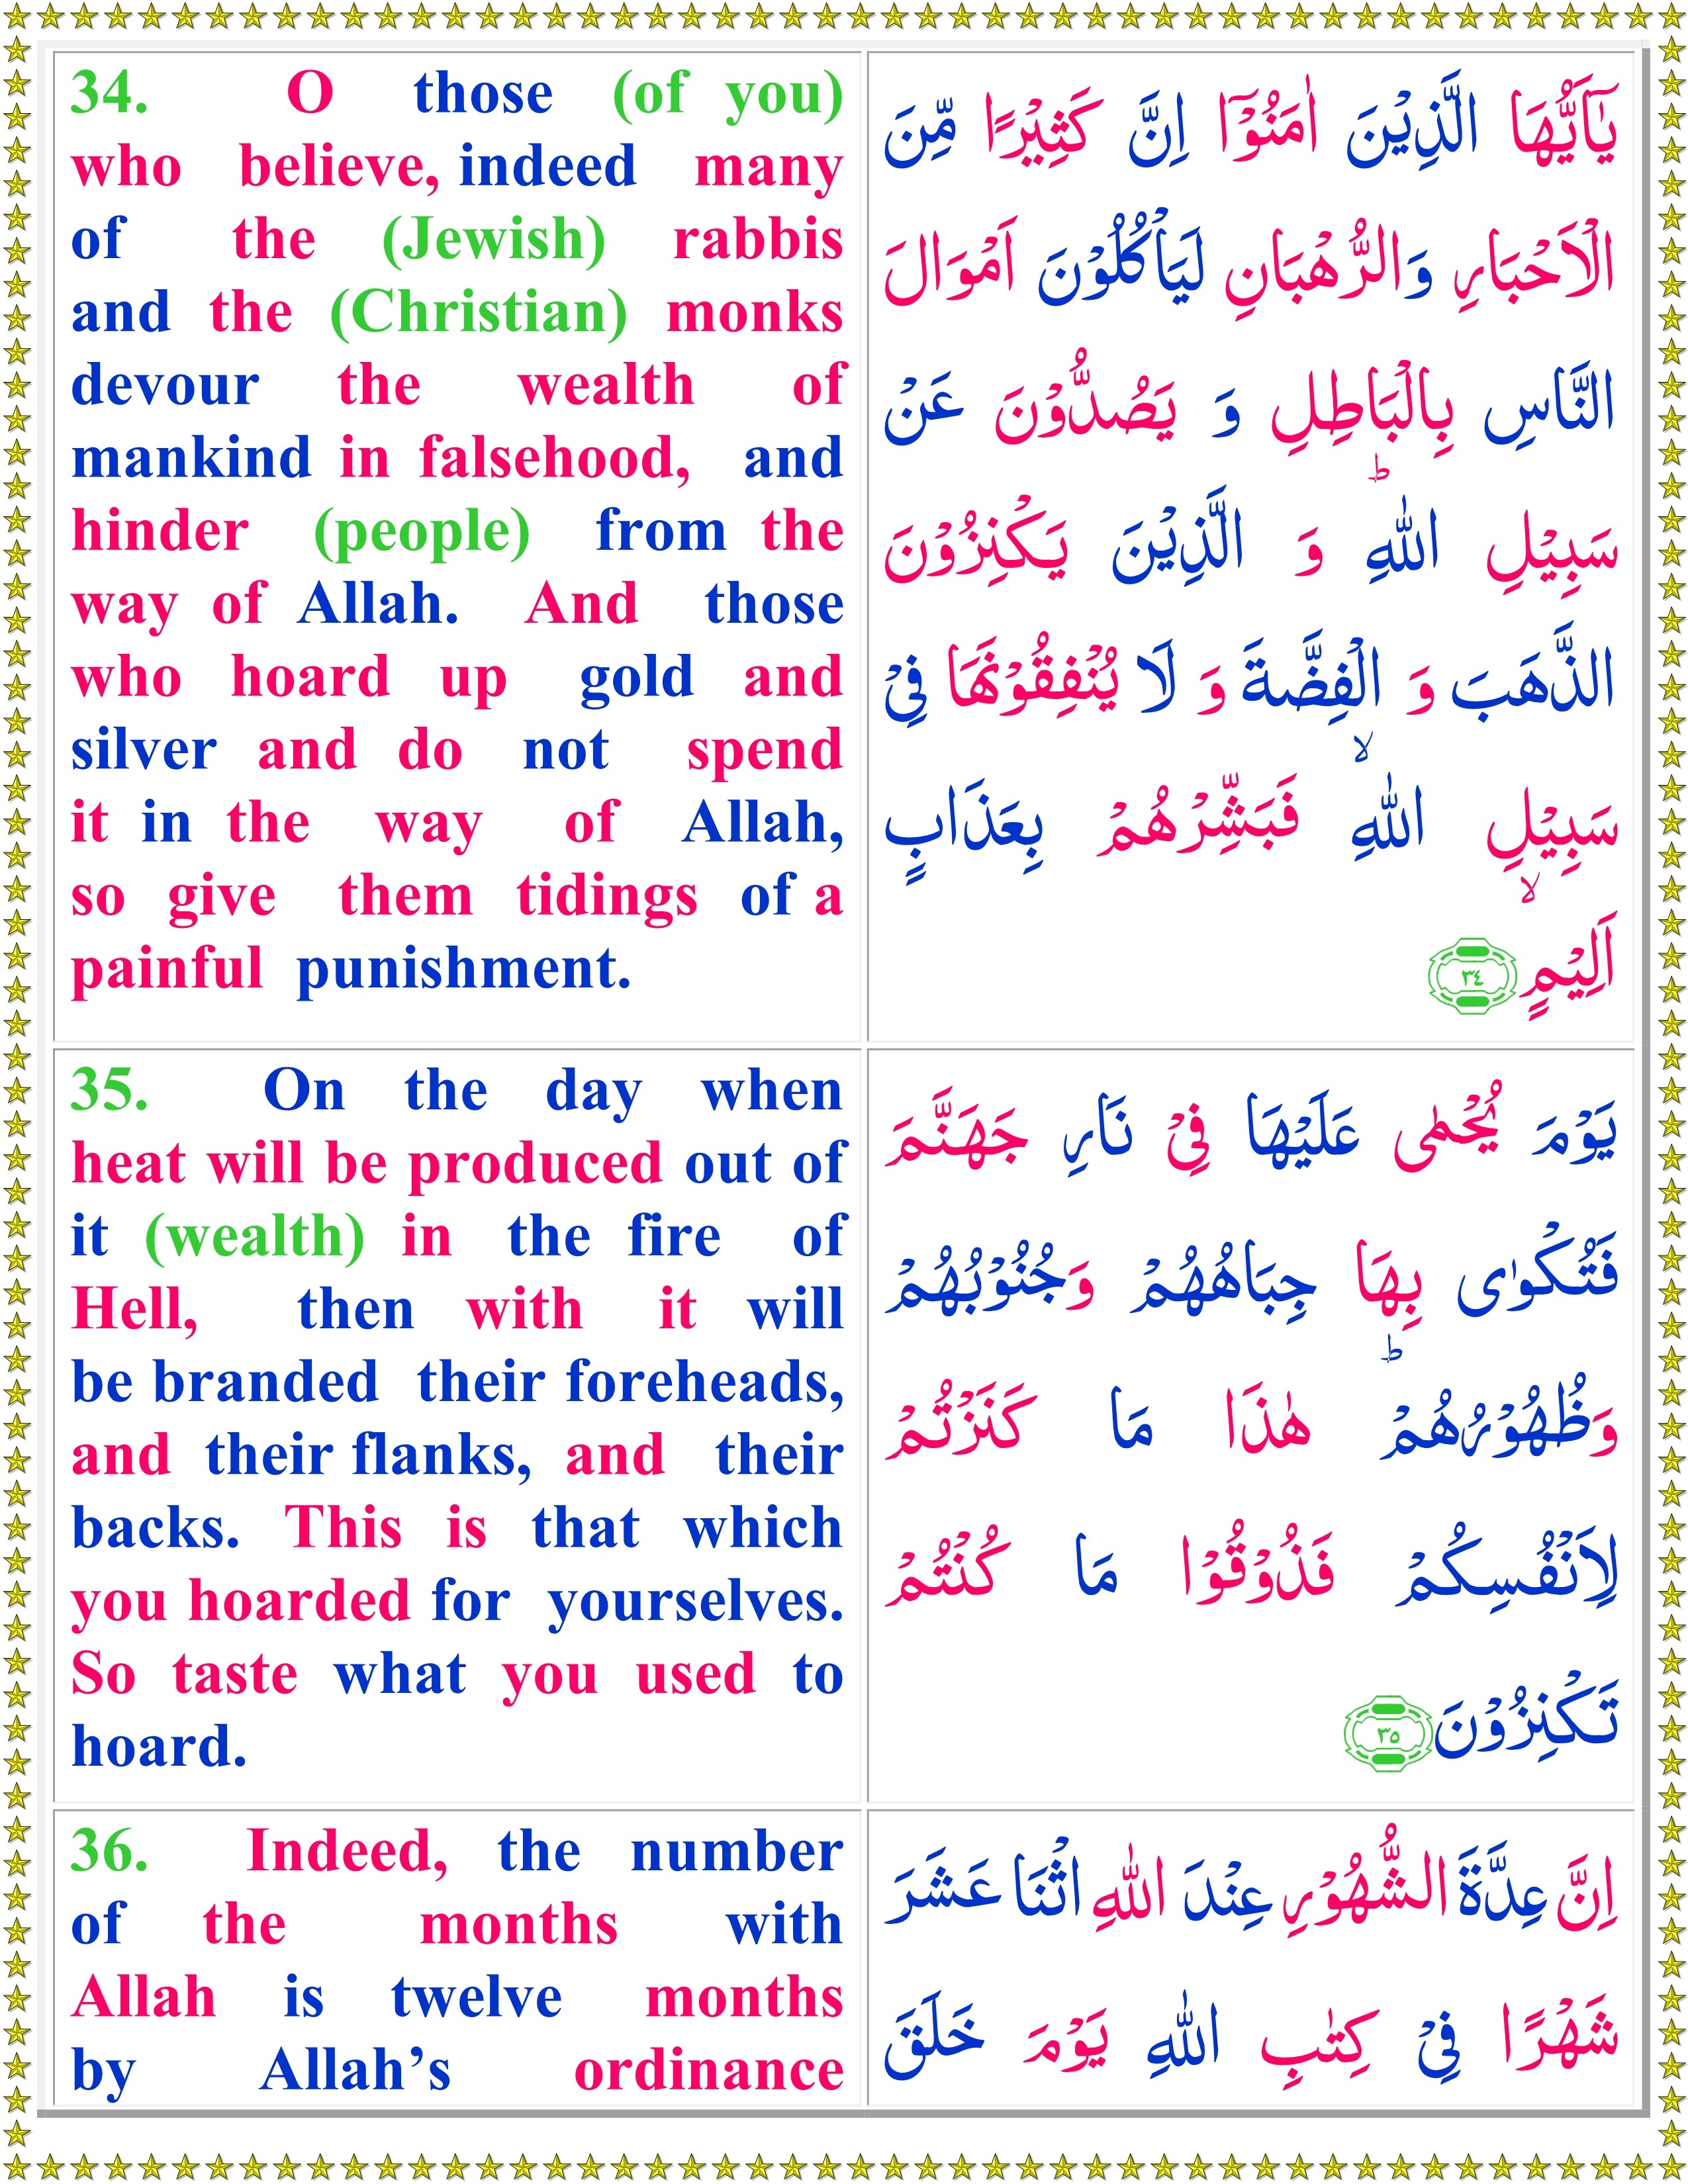 34. O those (of you)
who believe, indeed many
of the (Jewish) rabbis
and the (Christian) monks
devour the wealth of
mankind in falsehood, and
hinder (people) from the
way of Allah. And those
who hoard up gold and
silver and do not spend
it in the way of Allah,
so give them tidings of a
painful punishment.
يٰۤاَيُّهَا الَّذِيْنَ اٰمَنُوْۤا اِنَّ كَثِيْرًا مِّنَ
الْاَحْبَارِ وَالرُّهْبَانِ لَيَاْكُلُوْنَ اَمْوَالَ
النَّاسِ بِالْبَاطِلِ وَ يَصُدُّوْنَ عَنْ
سَبِيْلِ اللّٰهِ ؕ وَ الَّذِيْنَ يَكْنِزُوْنَ
الذَّهَبَ وَ الْفِضَّةَ وَ لَا يُنْفِقُوْنَهَا فِىْ
سَبِيْلِ اللّٰهِ ۙ فَبَشِّرْهُمْ بِعَذَابٍ
اَلِيْمٍ ۙ ٣٤
35. On the day when
heat will be produced out of
it (wealth) in the fire of
Hell, then with it will
be branded their foreheads,
and their flanks, and their
backs. This is that which
you hoarded for yourselves.
So taste what you used to
hoard.
يَوْمَ يُحْمٰى عَلَيْهَا فِىْ نَارِ جَهَنَّمَ
فَتُكْوٰى بِهَا جِبَاهُهُمْ وَجُنُوْبُهُمْ
وَظُهُوْرُهُمْ ؕ هٰذَا مَا كَنَزْتُمْ
لِاَنْفُسِكُمْ فَذُوْقُوْا مَا كُنْتُمْ
تَكْنِزُوْنَ ٣٥
36. Indeed, the number
of the months with
Allah is twelve months
by Allah’s ordinance
اِنَّ عِدَّةَ الشُّهُوْرِ عِنْدَ اللّٰهِ اثْنَا عَشَرَ
شَهْرًا فِىْ كِتٰبِ اللّٰهِ يَوْمَ خَلَقَ